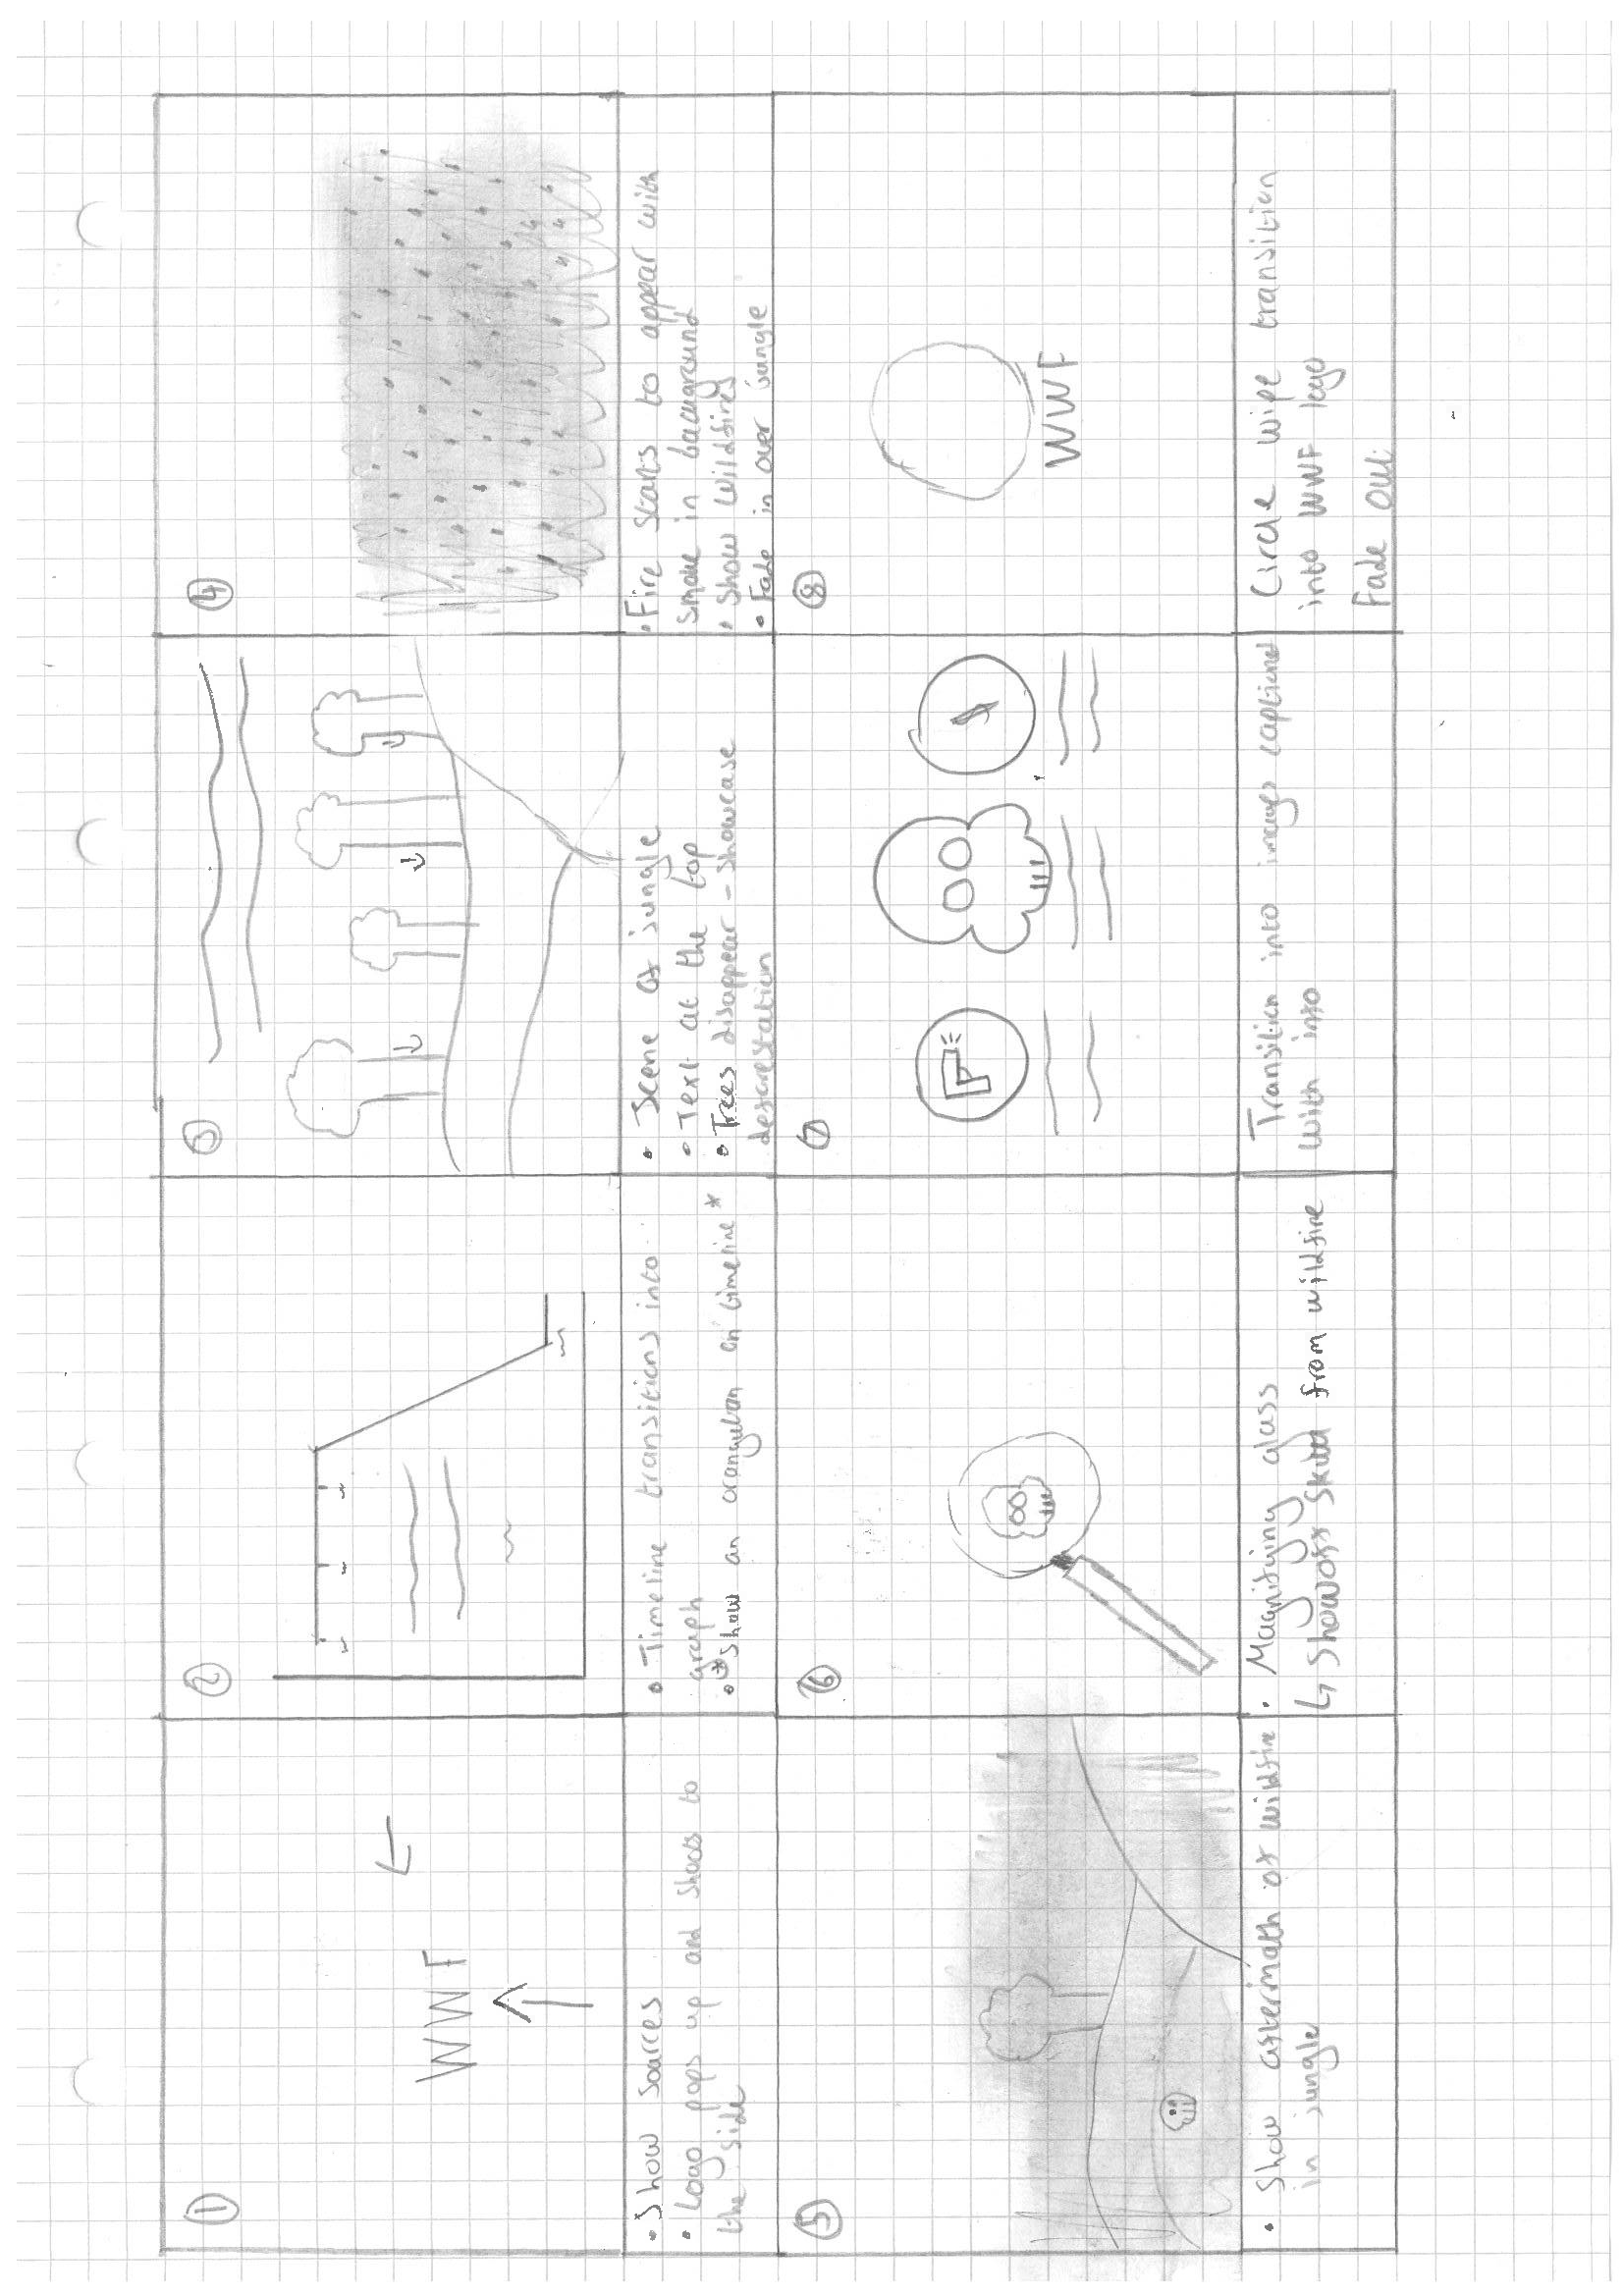 1
WWF
• Show sources
• Logo pops up and shoots to
the side
2
• Timeline transitions into
graph
• * Show an orangutan on timeline *
3
• Scene of jungle
• Text at the top
• Trees disappear - showcase
deforestation
4
• Fire starts to appear with
smoke in background
• Show wildfires
• Fade in over jungle
5
• Show aftermath of wildfire
in jungle
6
• Magnifying glass
↳ Shows skull from wildfire
7
Transition into images captioned
with info
8
WWF
Circle wipe transition
into WWF logo
Fade out